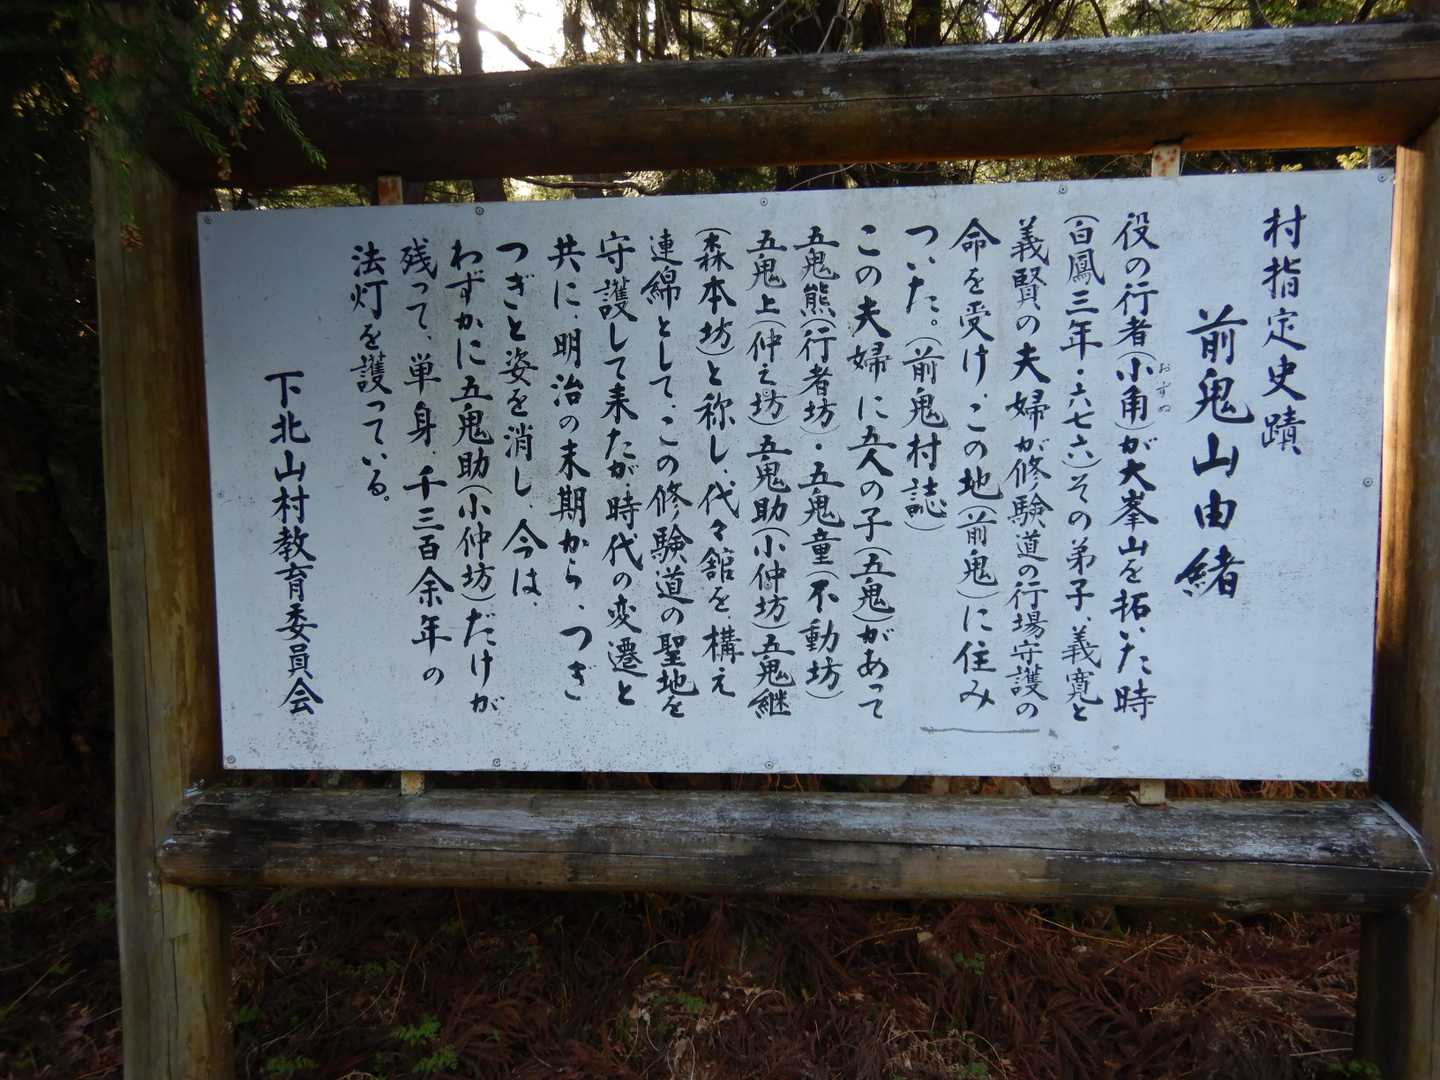 村指定史蹟
前鬼山由緒
役の行者(小角)が大峯山を拓いた時
おずぬ
(白鳳三年・六七六)その弟子、義寛と
義賢の夫婦が修験道の行場守護の
命を受け、この地(前鬼)に住み
ついた。(前鬼村誌)
この夫婦に五人の子(五鬼)があって
五鬼熊(行者坊)・五鬼童(不動坊)
五鬼上(仲之坊)五鬼助(小仲坊)五鬼継
(森本坊)と称し、代々舘を、構え
連綿として、この修験道の聖地を
守護して来たが、時代の変遷と
共に、明治の末期から、つぎ
つぎと姿を消し、今は、
わずかに五鬼助(小仲坊)だけが
残って、単身、千三百余年の
法灯を護っている。
下北山村教育委員会